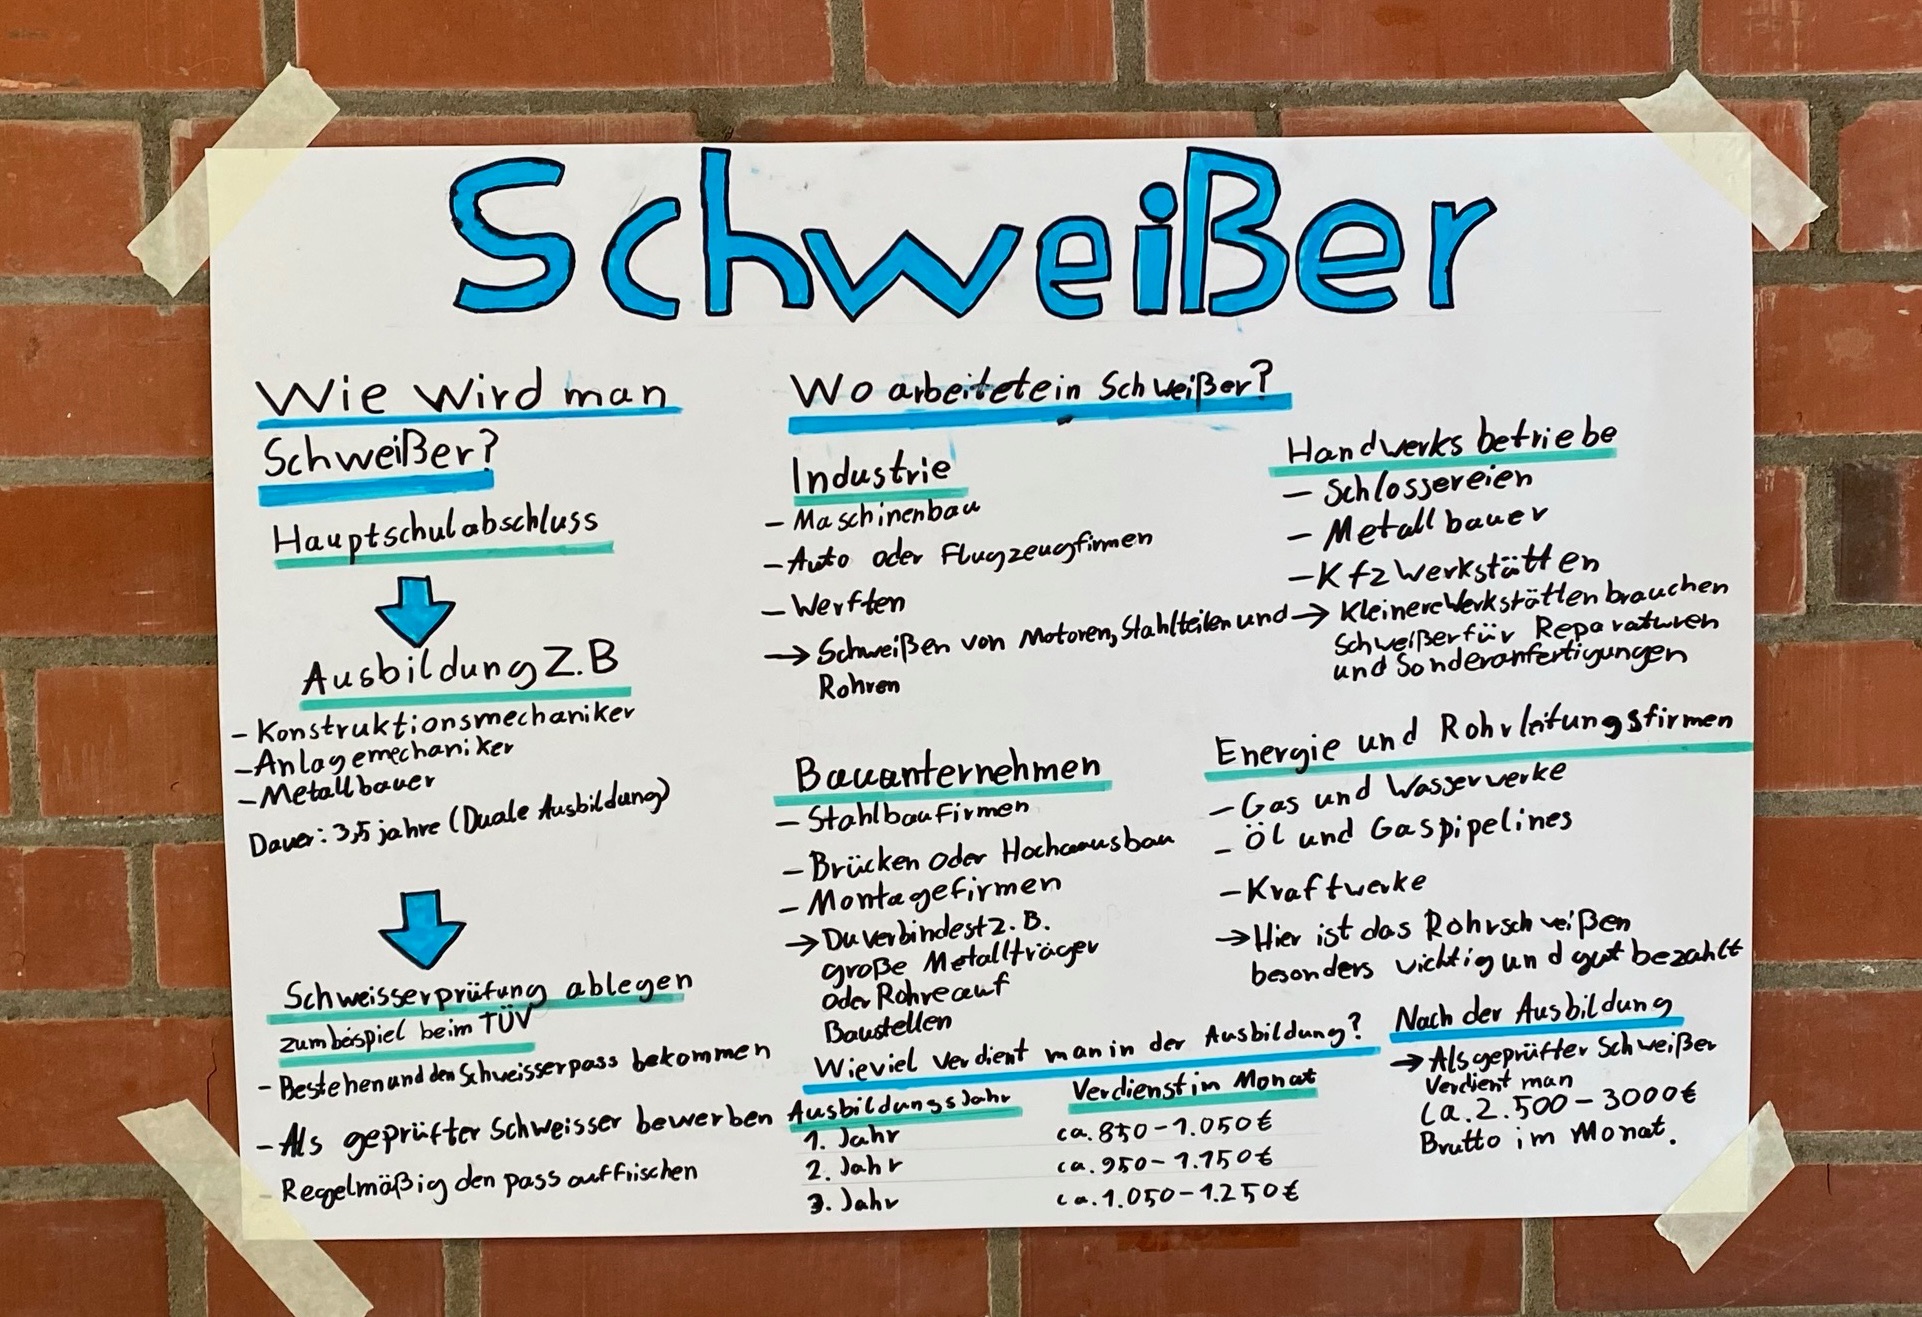 Schweißer
Wie wird man
Schweißer?
Hauptschulabschluss
Ausbildung Z.B
- Konstruktionsmechaniker
- Anlagemechaniker
- Metallbauer
Dauer: 3,5 jahre (Duale Ausbildung)
Schweisserprüfung ablegen
zum beispiel beim TÜV
- Bestehen und den Schweisserpass bekommen
- Als geprüfter Schweisser bewerben
- Regelmäßig den pass auffrischen
Wo arbeitet ein Schweißer?
Industrie
- Maschinenbau
- Auto oder Flugzeugfirmen
- Werften
→ Schweißen von Motoren, Stahlteilen und
Rohren
Handwerksbetriebe
- Schlossereien
- Metallbauer
- Kfz Werkstätten
→ Kleinere Werkstätten brauchen
Schweißer für Reparaturen
und Sonderanfertigungen
Bauunternehmen
- Stahlbaufirmen
- Brücken oder
- Montagefirmen
→ Du verbindest z.B.
große Metallträger
oder Rohre auf
Baustellen
Energie und Rohrleitungsfirmen
- Gas und Wasserwerke
- Öl und Gaspipelines
- Kraftwerke
→ Hier ist das Rohrschweißen
besonders wichtig und gut bezahlt
Wieviel verdient man in der Ausbildung?
Ausbildungsjahr Verdienst im Monat
1. Jahr ca. 850 - 1.050€
2. Jahr ca. 950 - 1.150€
3. Jahr ca. 1.050 - 1.250€
Nach der Ausbildung
→ Als geprüfter Schweißer
Verdient man
ca. 2.500 - 3000€
Brutto im Monat.